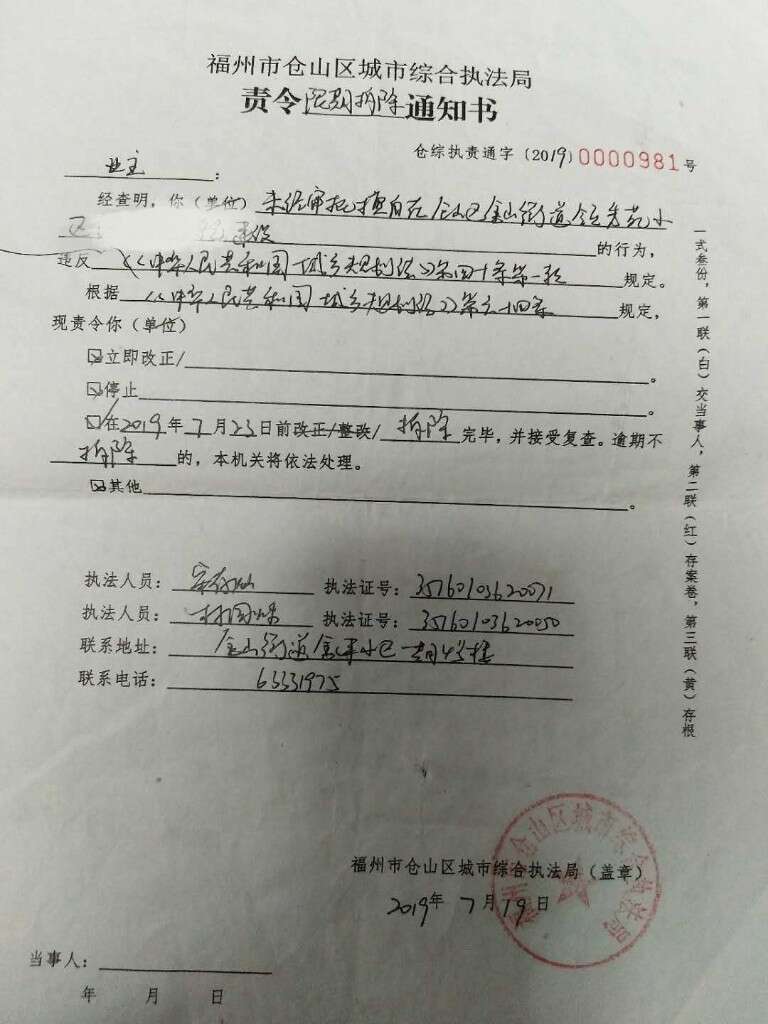 福州市仓山区城市综合执法局
责令限期拆除通知书
仓综执责通字（2019）0000981号
业主：
经查明，你（单位）未经审批擅自在仓山区金山街道领秀苑小
区 建设的行为，
违反《中华人民共和国城乡规划法》第四十条第一款规定。
根据《中华人民共和国城乡规划法》第六十四条规定，
现责令你（单位）
立即改正/。
停止。
在2019年7月23日前改正/整改/拆除完毕，并接受复查。逾期不
拆除的，本机关将依法处理。
其他。
执法人员： 执法证号：35160103620071
执法人员：林国 执法证号：35160103620050
联系地址：金山街道金 小区 4号楼
联系电话：63331975
福州市仓山区城市综合执法局（盖章）
2019年7月19日
福州市仓山区城市综合执法局
当事人：
年 月 日
一式叁份，第一联（白）交当事人，第二联（红）存案卷，第三联（黄）存根